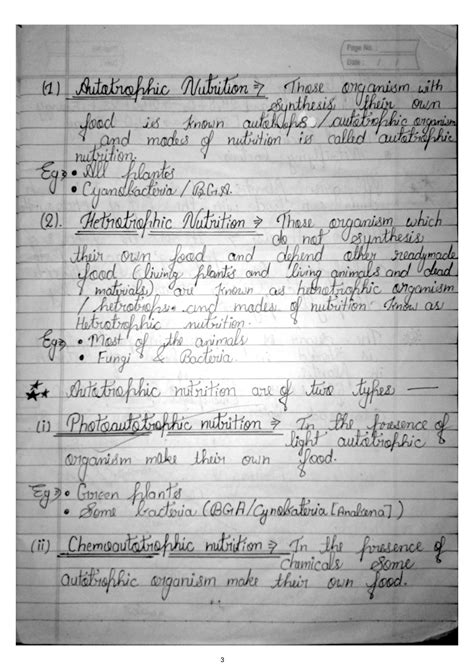 Page No.
Date : / /
(1) Autotrophic Nutrition ⇒ Those organism with
synthesis their own
food is known autotrops / autotrophic organism
and modes of nutrition is called autotrophic
nutrition.
Eg ⇒ • All plantes
• Cyanobacteria / B.G.A.
(2). Hetrotrophic Nutrition ⇒ Those organism which
do not synthesis
their own food and depend other readymade
food (living plants and living animals and dead
/ materials) are known as hetrotrophic organism
/ hetrotrops. and modes of nutrition know as
Hetrotrophic nutrition.
Eg ⇒ • Most of the animals
• Fungi & Bacteria.
Autotrophic nutrition are of two types —
(i) Photoautotrophic nutrition ⇒ In the presence of
light autotrophic
organism make their own food.
Eg ⇒ • Green plants
• Some bacteria (BGA/Cynobateria [Anabaena])
(ii) Chemoautotrophic nutrition ⇒ In the presence of
chemicals some
autotrophic organism make their own food.
3